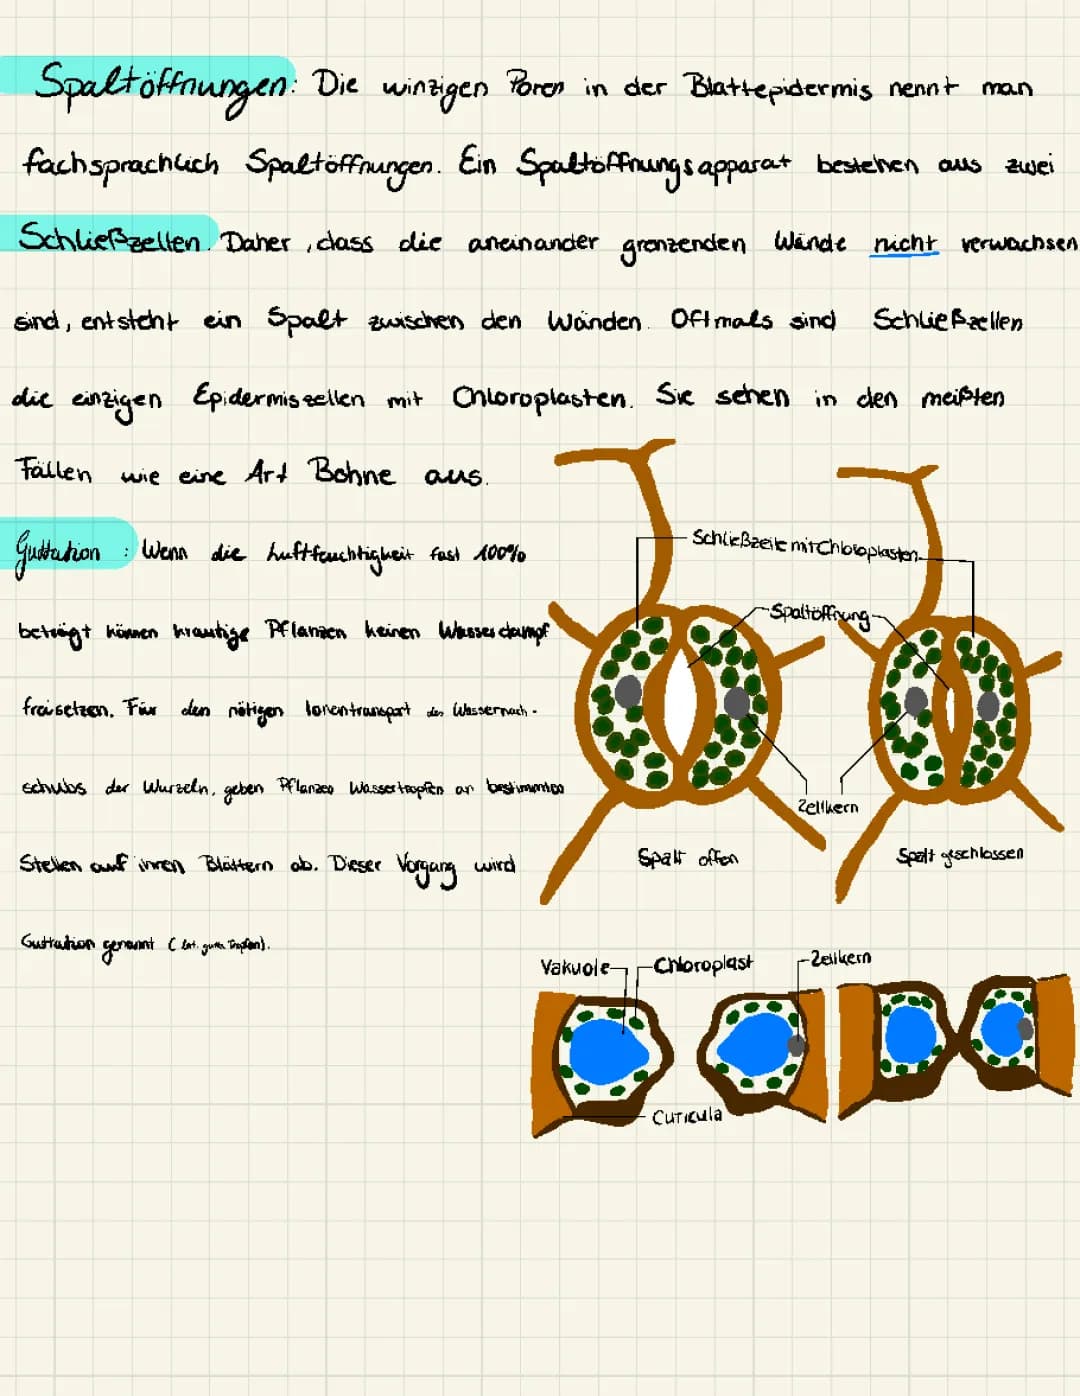 Spaltöffnungen: Die winzigen Poren in der Blattepidermis nennt man
fachsprachlich Spaltöffnungen. Ein Spaltöffnungsapparat bestehen aus zwei
Schließzellen. Daher, dass die aneinander grenzenden Wände nicht verwachsen
sind, entsteht ein Spalt zwischen den Wänden. Oftmals sind Schließzellen
die einzigen Epidermiszellen mit Chloroplasten. Sie sehen in den meißten
Fällen wie eine Art Bohne aus.
Guttation : Wenn die Luftfeuchtigkeit fast 100%
beträgt können krautige Pflanzen keinen Wasserdampf
freisetzen. Für den nötigen Ionentransport des Wassernach-
schubs der Wurzeln, geben Pflanzen Wassertropfen an bestimmten
Stellen auf ihren Blättern ab. Dieser Vorgang wird
Guttation genannt (lat. gutta Tropfen).
Schließzelle mit Chloroplasten
Spaltöffnung
Zellkern
Spalt offen
Spalt geschlossen
Vakuole
Chloroplast
Zellkern
Cuticula